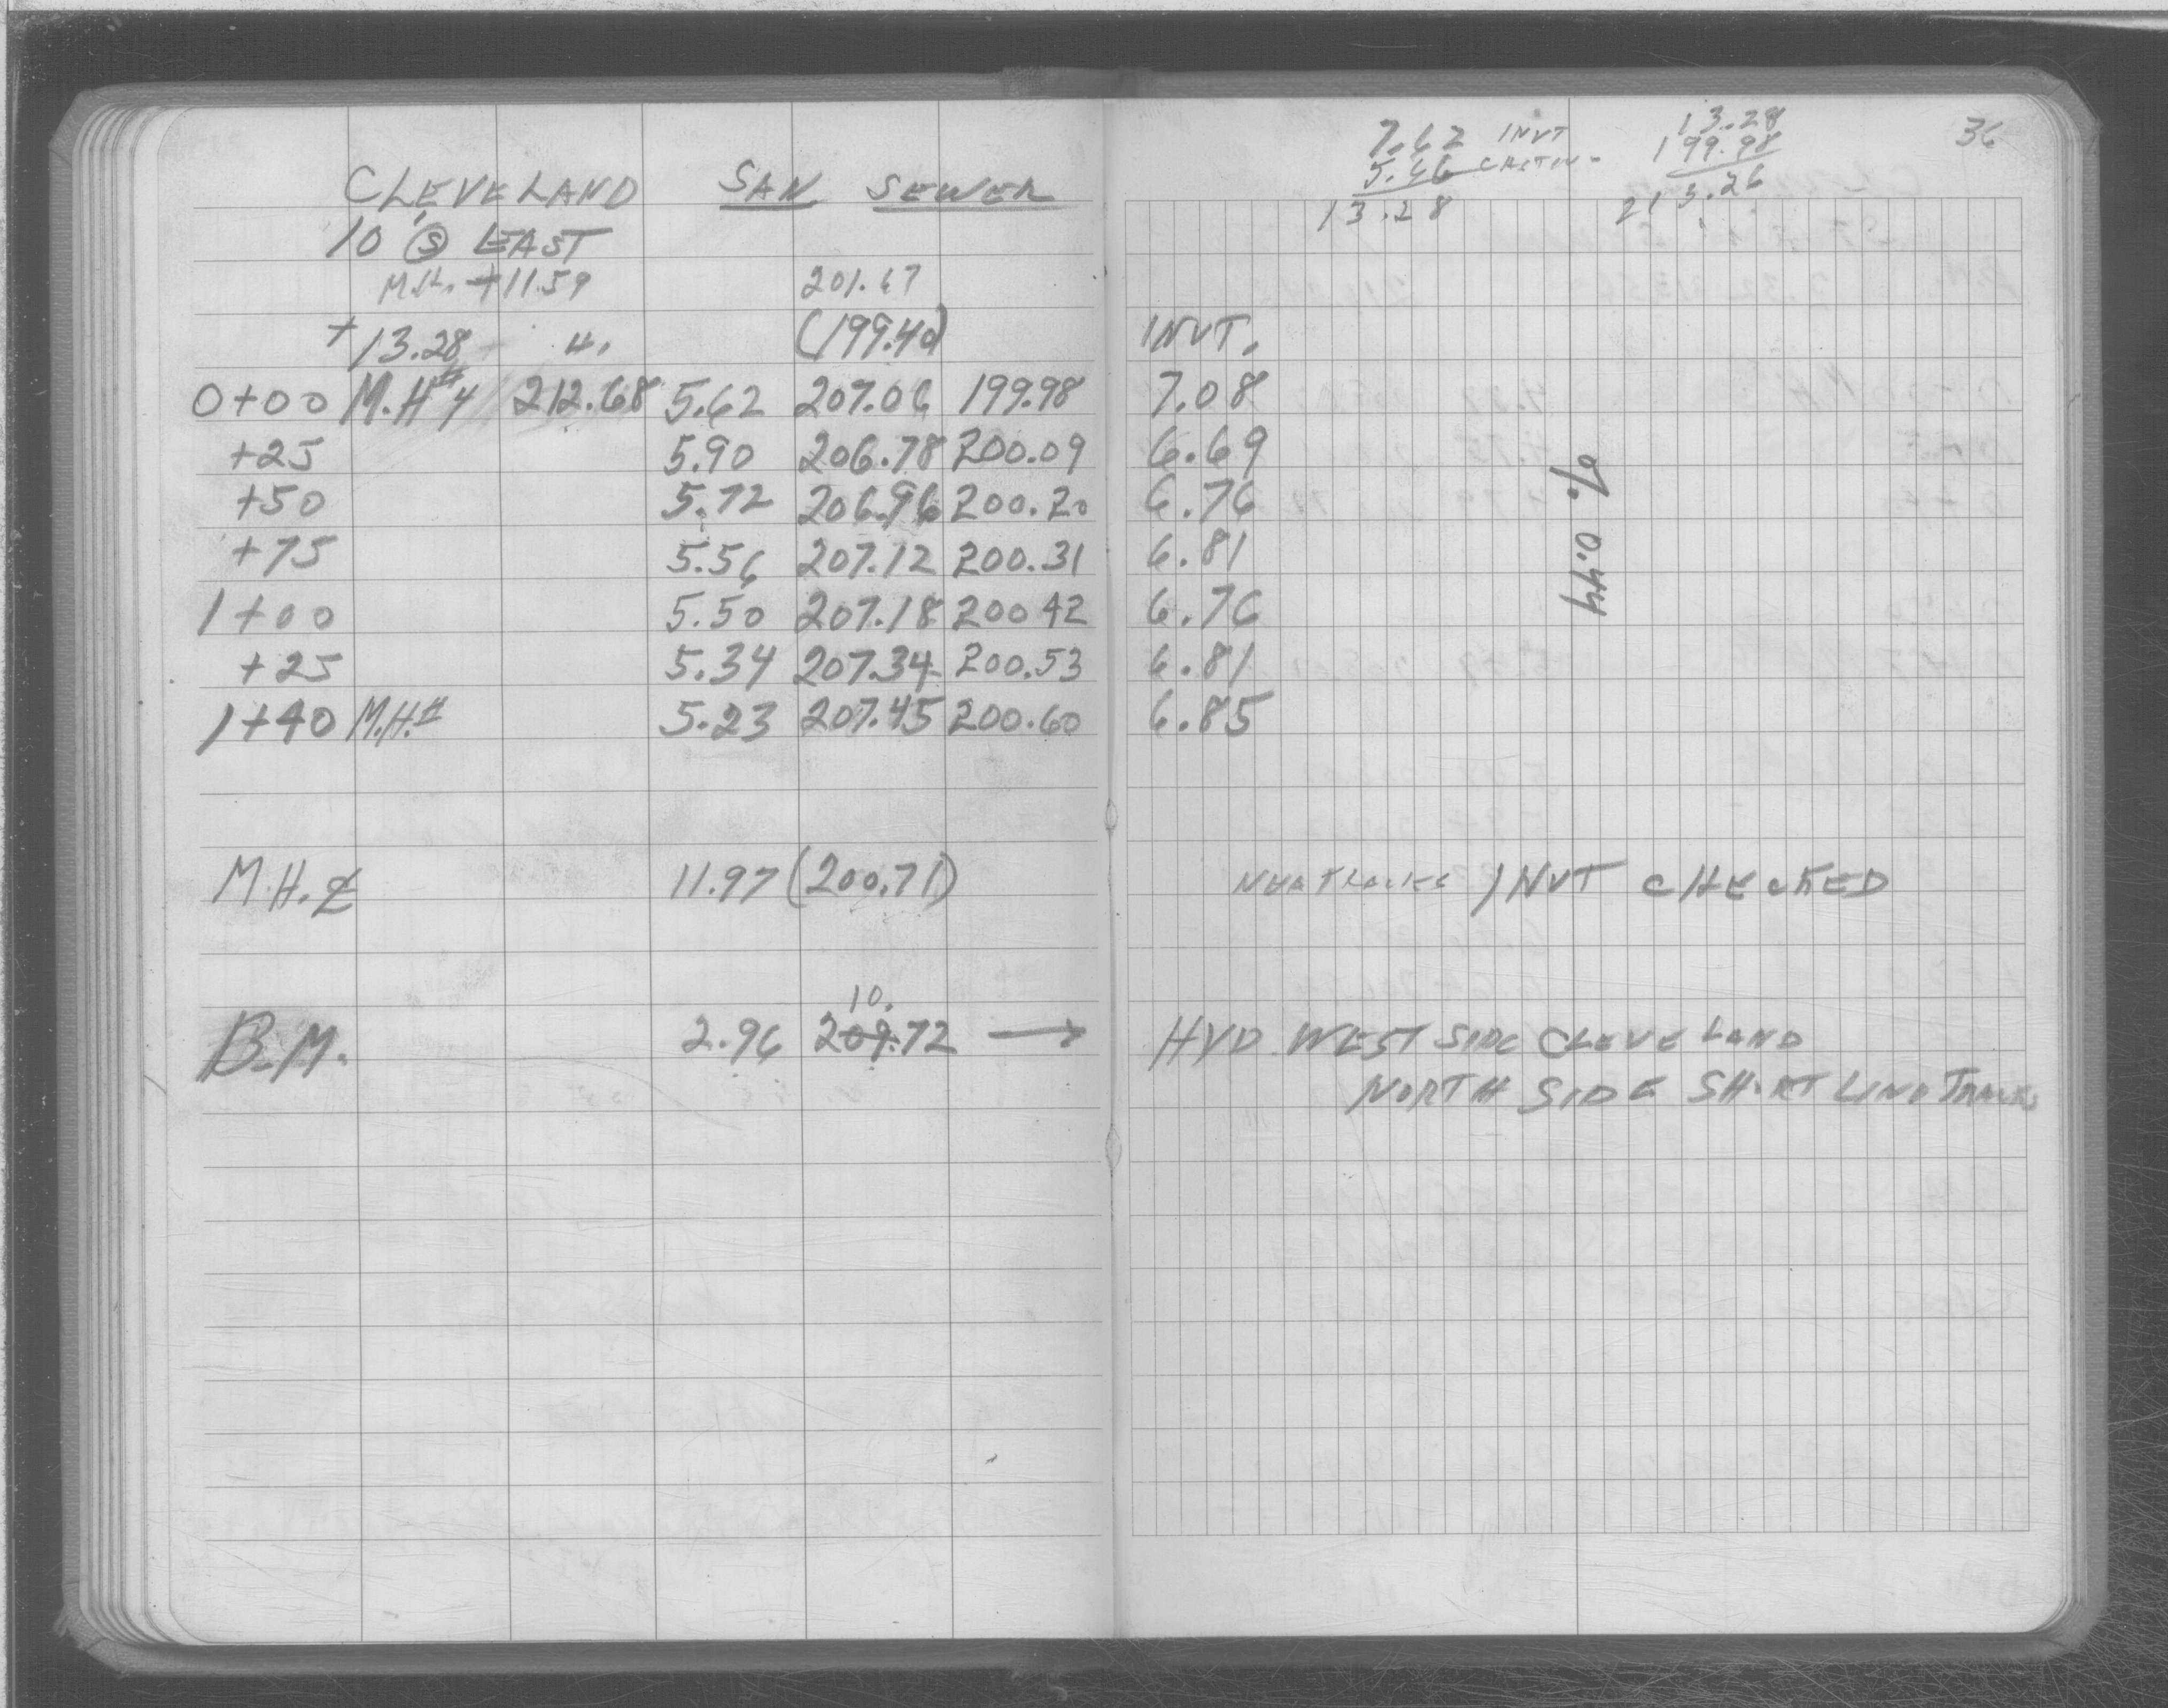 CLEVELAND SAN SEWER
10' Ⓢ EAST
M.H. +11.59 201.67
+13.28 H. (199.40)
0+00 M.H#4 212.68 5.62 207.06 199.98
+25 5.90 206.78 200.09
+50 5.72 206.96 200.20
+75 5.56 207.12 200.31
1+00 5.50 207.18 200 42
+25 5.34 207.34 200.53
1+40 M.H.# 5.23 207.45 200.60
M.H. ℄ 11.97 (200.71)
10.
B.M. 2.96 209.72 →
36
7.62 INVT
5.66
13.28
13.28
199.98
213.26
INVT.
7.08
6.69
6.76
6.81
6.76
6.81
6.85
% 0.44
INVT CHECKED
HYD WEST SIDE CLEVELAND
NORTH SIDE SHORT LINE TRACKS